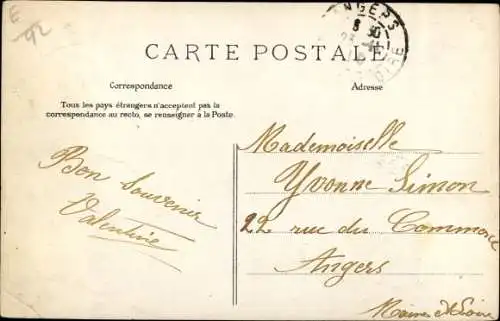 E
92
ANGERS
CARTE POSTALE
Correspondance
Adresse
Tous les pays étrangers n'acceptent pas la
correspondance au recto, se renseigner à la Poste.
Bon Souvenir
Valentine
Mademoiselle
Yvonne Simon
22 rue du Commerce
Angers
Maine et Loire